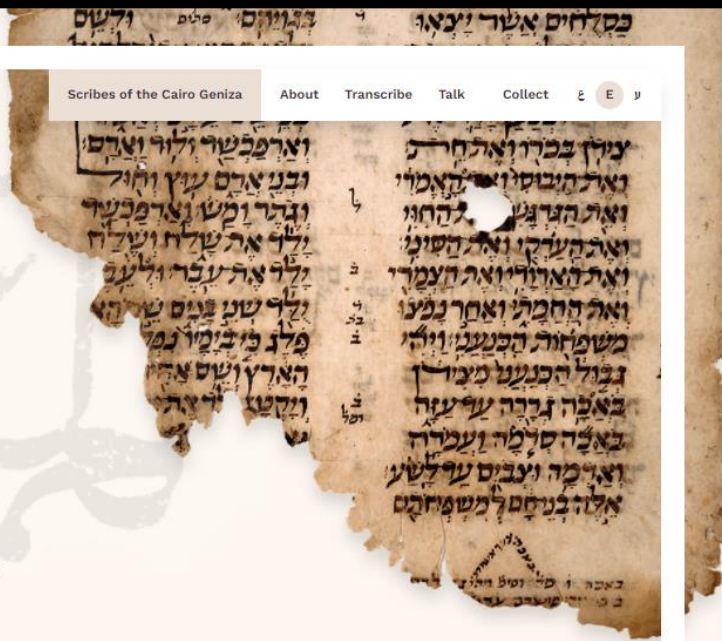 כסלחים אשר יצאו
בגוייהם ולשם
Scribes of the Cairo Geniza About Transcribe Talk Collect ع E ע
צידן בכרו ואת חת
ואת היבוסי ואת האמרי
ואת הגרגש החוי
ואת הערקי ואת הסיני
ואת הארודי ואת הצמרי
ואת החמתי ואחר נפצו
משפחות הכנעני ויהי
גבול הכנעני מצידן
באכה גררה עד עזה
באכה סדמה ועמרה
ואדמה וצבים עד לשע
אלה בני חם למשפחתם
וארפכשד ולוד וארם
ובני ארם עוץ וחול
וגתר ומש וארפכשד
ילד את שלח ושלח
ילד את עבר ולעב
ילד שני בנים שם הא
פלג כי בימיו נפל
הארץ ושם אחי
ויקטן ילד את